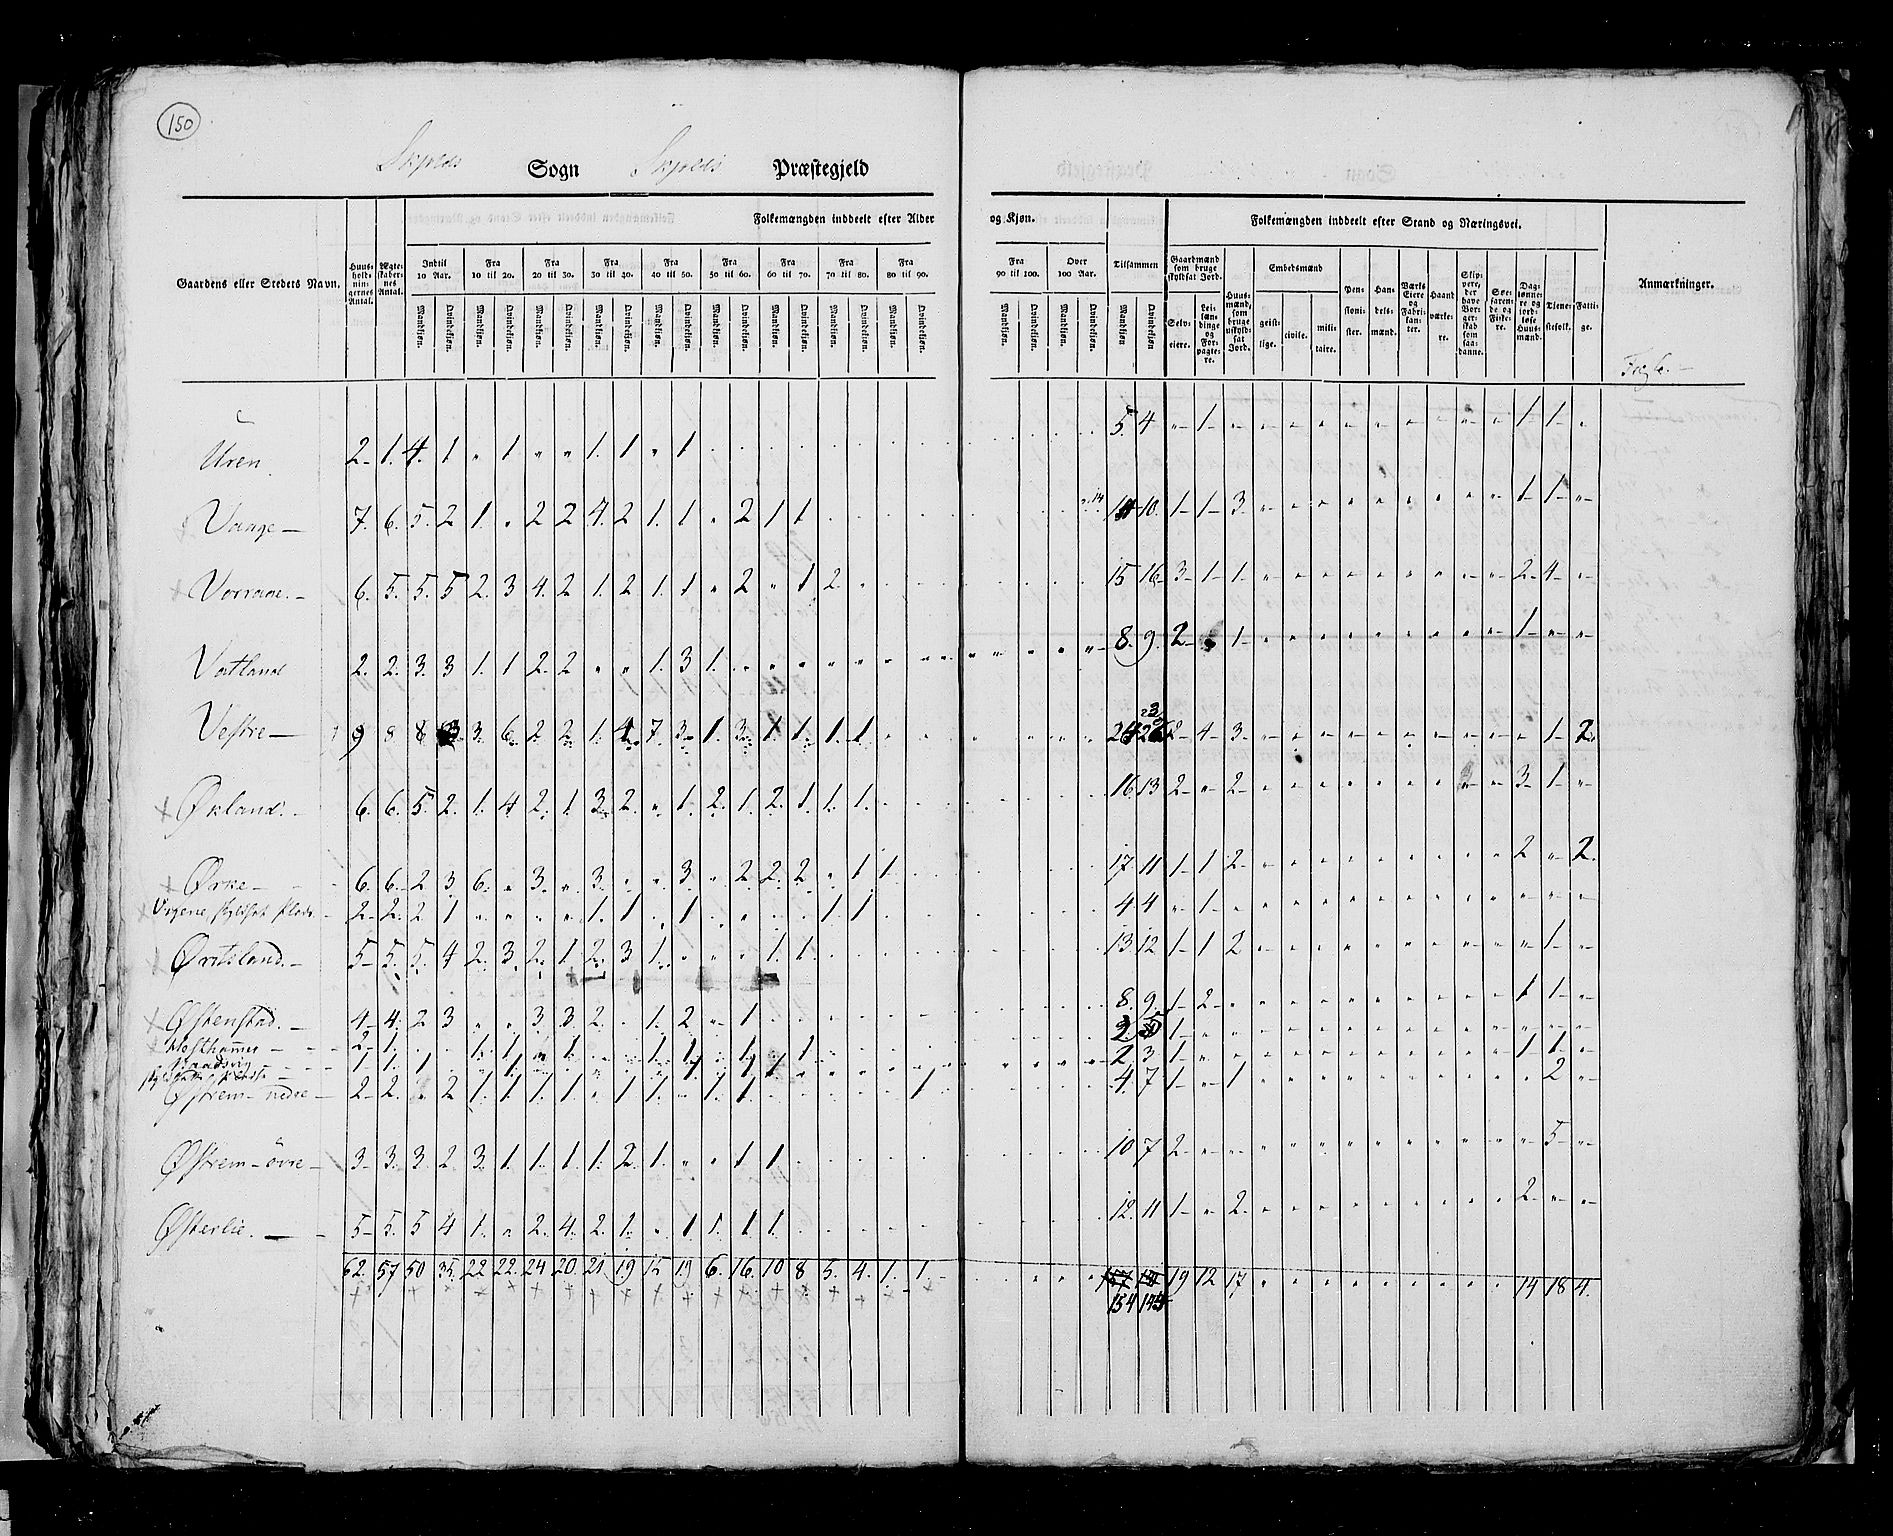 150
Skjolds Sogn Skjolds Præstegjeld
Gaardens eller Steders Navn.
Huusholdningernes Antal.
Ægteskabernes Antal.
Folkemængden inddeelt efter Alder og Kjøn.
Indtil 10 Aar. Fra 10 til 20. Fra 20 til 30. Fra 30 til 40. Fra 40 til 50. Fra 50 til 60. Fra 60 til 70. Fra 70 til 80. Fra 80 til 90. Fra 90 til 100. Over 100 Aar. Tilsammen
Mandkjøn. Qvindekjøn. Mandkjøn. Qvindekjøn. Mandkjøn. Qvindekjøn. Mandkjøn. Qvindekjøn. Mandkjøn. Qvindekjøn. Mandkjøn. Qvindekjøn. Mandkjøn. Qvindekjøn. Mandkjøn. Qvindekjøn. Mandkjøn. Qvindekjøn. Mandkjøn. Qvindekjøn. Mandkjøn. Qvindekjøn. Mandkjøn Qvindekjøn
Folkemængden inddeelt efter Stand og Næringsvei.
Gaardmænd som bruge skyldsat Jord.
Selveiere.
Leilændinge og Forpagtere.
Huusmænd som bruge uskyldsat Jord.
Embedsmænd
geistlige. civile. militaire.
Pensionister.
Handelsmænd.
Værks Eiere og Fabrikanter.
Haandværkere.
Skippere, der have Borgerskab som saadanne.
Søefarende og Fiskere.
Daglønnere og jordløse Huusmænd.
Tienestefolk.
Fattige.
Anmærkninger.
Uren 2 1 4 1 " 1 " " 1 1 " 1 5 4 " 1 " 1 1 "
Vaage 7 6 5 2 1 " 2 2 4 2 1 1 " 2 1 1 14 10 1 1 3 1 1 "
6 5 5 5 2 3 4 2 1 2 1 1 " 2 " 1 2 15 16 3 1 1 2 4 "
Vatland 2 2 3 3 1 1 2 2 " " 1 3 1 8 9 2 " 1 1 " "
Vestre 9 8 8 3 3 6 2 2 1 4 7 3 1 3 1 1 1 1 24 2 4 3 " 1 2
Økland 6 6 5 2 1 4 2 1 3 2 " 1 2 1 2 1 1 1 16 13 2 " 2 3 1 "
Ørke 6 6 2 3 6 " 3 " 3 " " 3 " 2 2 2 " 1 1 17 11 1 1 2 2 " 2
2 2 2 1 " " " " 1 1 " 1 " " " " 1 1 4 4 " 1
5 5 5 4 2 3 2 1 2 3 1 " " " 1 1 13 12 1 1 2 " 1 "
Østenstad 4 4 2 3 " " 3 3 2 " 1 2 " 1 8 9 1 2 " 1 1 "
2 1 " " 1 1 " 1 " " 1 1 " 1 " 1 1
1 1 1 2 3 1 1 1
Østrem nedre 2 2 " 2 1 1 1 1 " 1 1 " 1 1 1 4 7 1 " 1 2 "
Østrem øvre 3 3 3 2 3 1 1 1 1 2 1 " " 1 1 10 7 2 " " " 5 "
Østerlie 5 5 5 4 1 " 2 4 2 1 " 1 1 1 1 12 11 1 " 2 2 " "
62 57 50 35 22 22 24 20 21 19 15 19 6 16 10 8 5 4 1 1 19 12 17 14 18 4
154